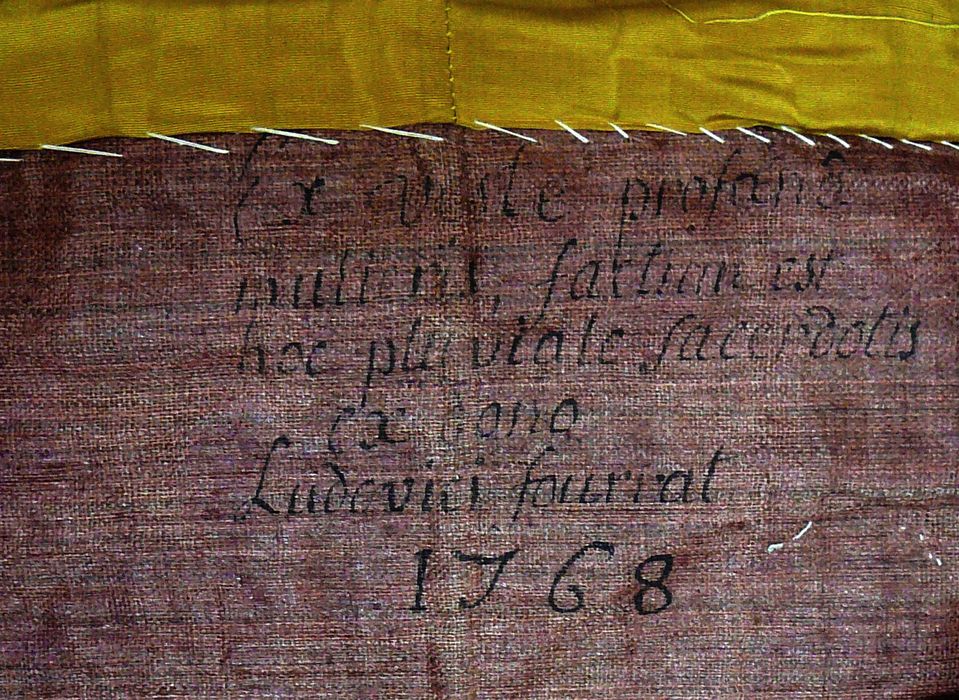 Ex veste profanâ
mulieris, factum est
hoc pluviale sacerdotis
ex dono
Ludovici fourrat
1768